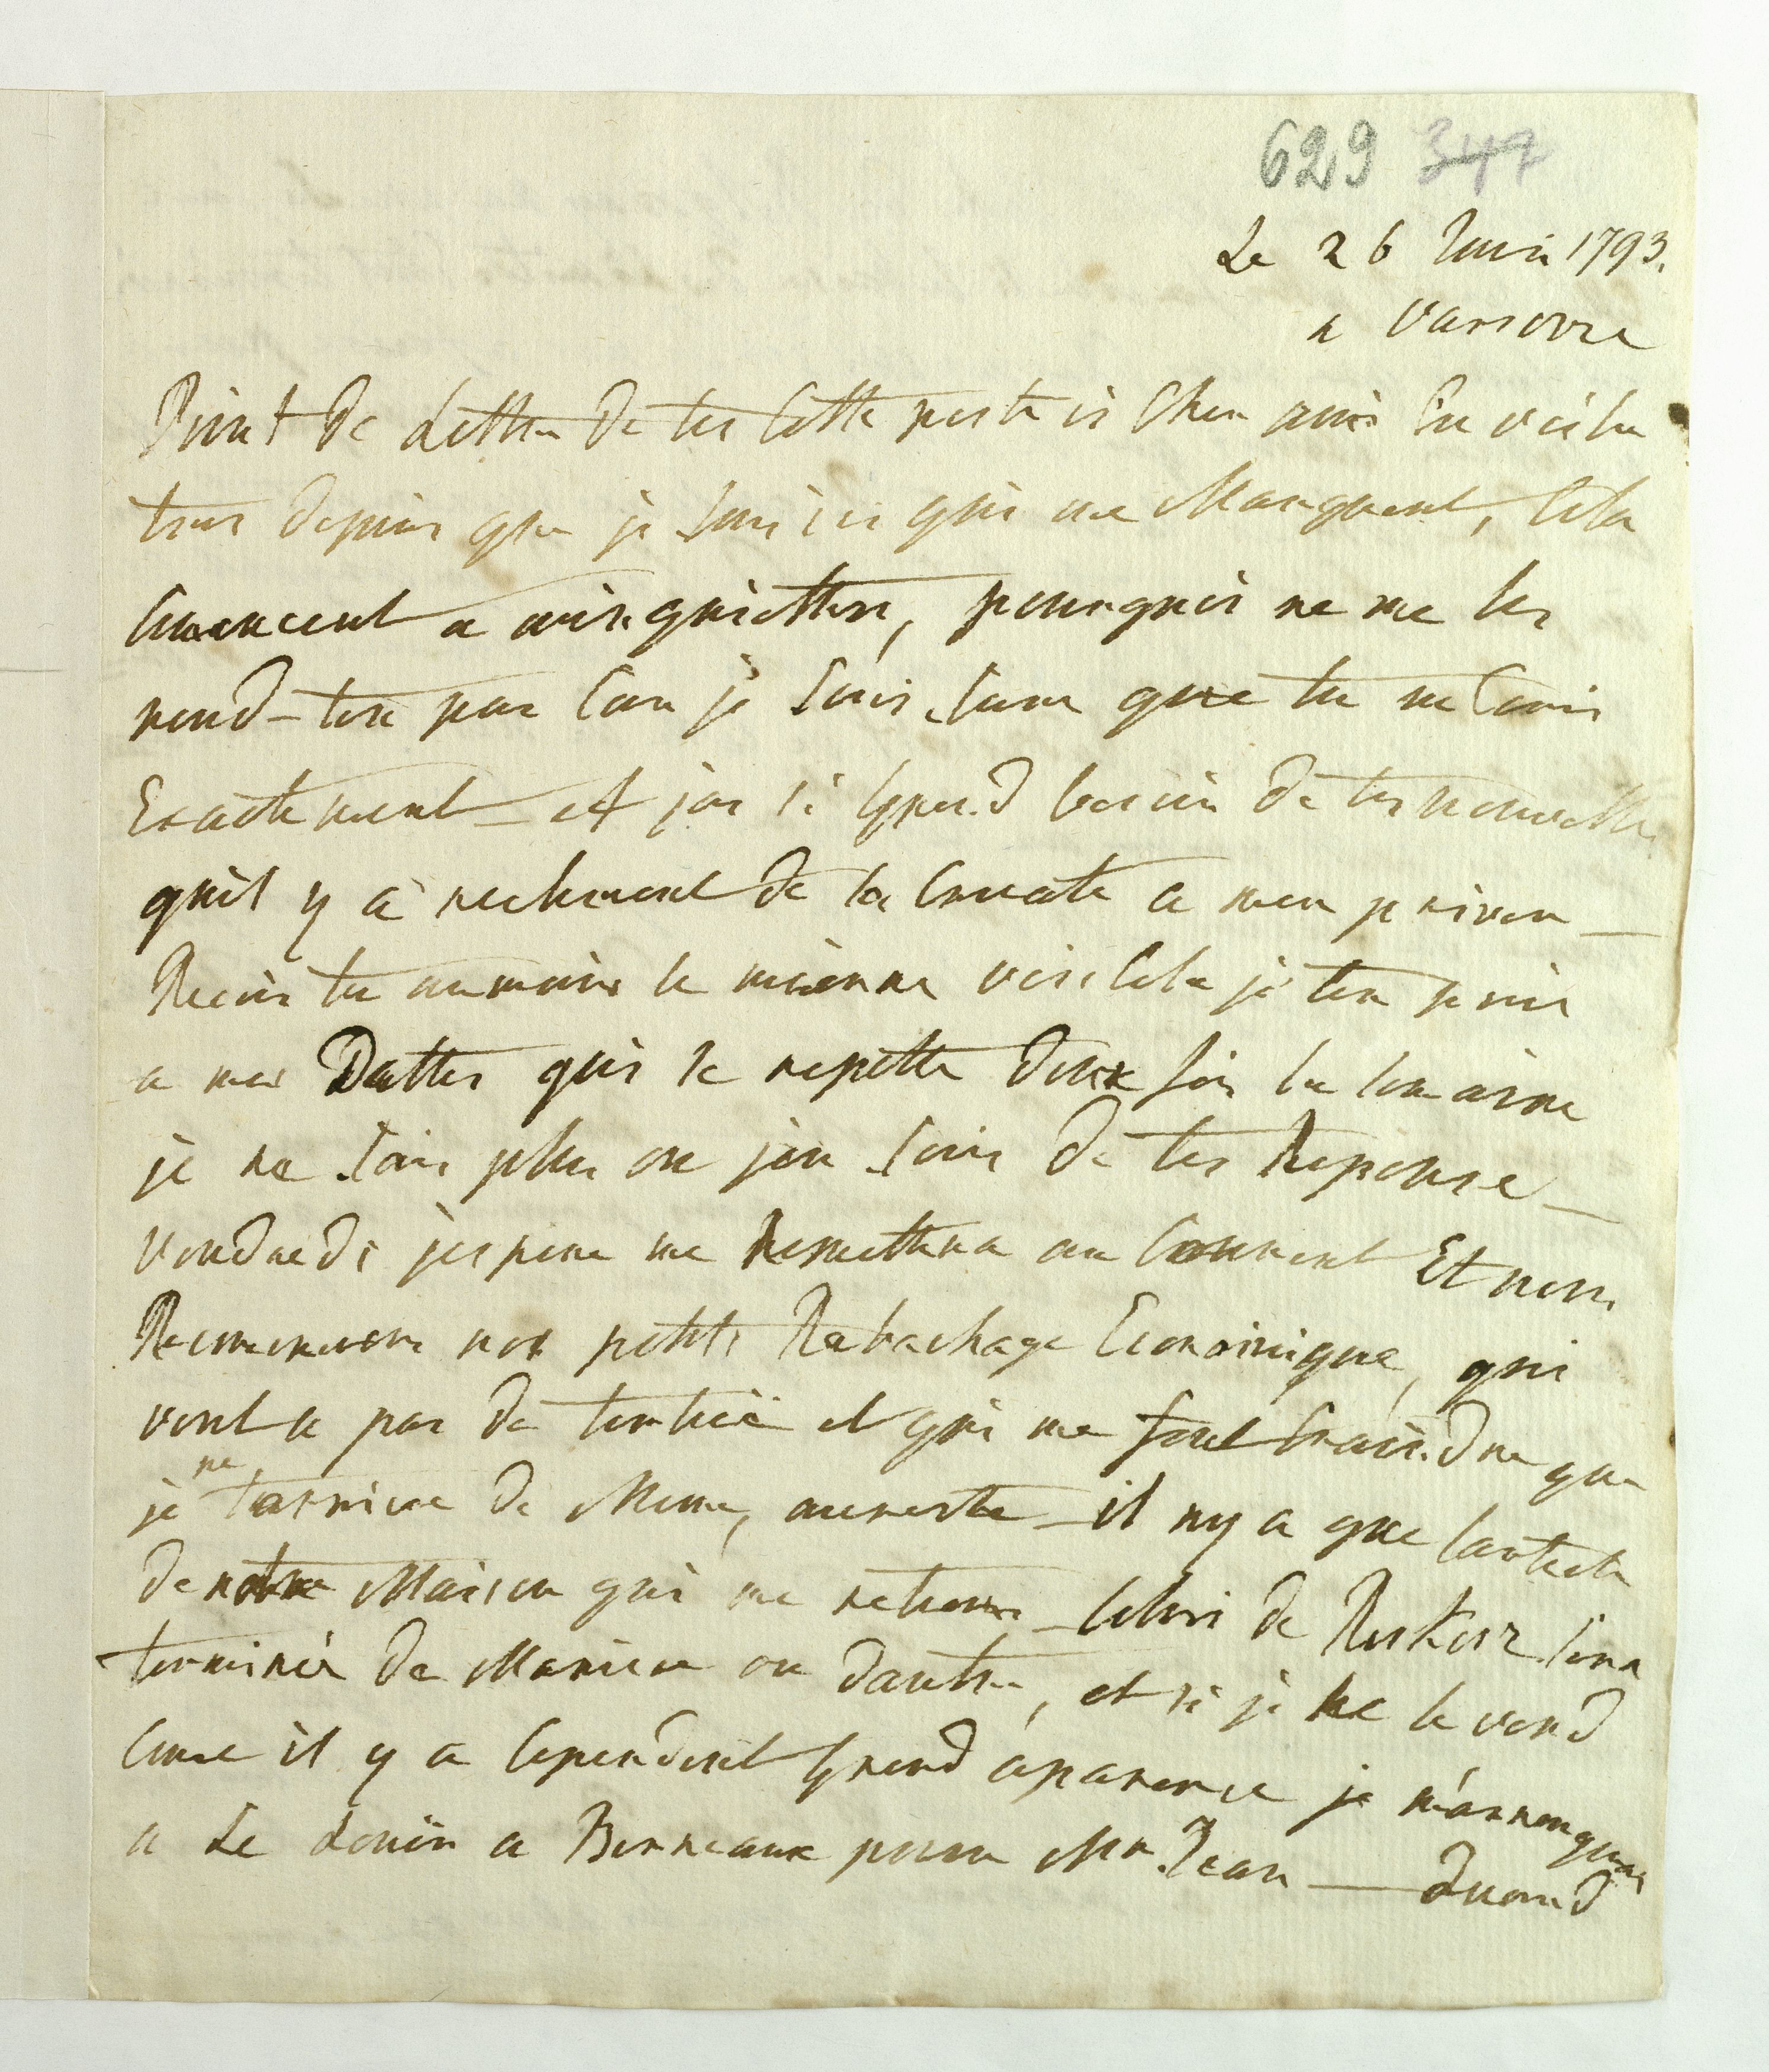 629 347
Le 26 Juin 1793.
a Varsovie
Point de Lettre de toi cette poste ci Cher ami En voila
trois depuis que je suis ici qui me Manquent, Cela
Comencent a m'inquietter, pourquoi ne me les
rend-ton pas Car je suis sure que tu m'ecris
Exactement et jai si Grand besoin de tes nouvelles
quil y à réelement de la Cruauté a men priver —
Recois tu aumoins le mienne vois Cela je ten prie
a mes Dattes qui se repette deux fois la semaine
je ne sais plus ou jen suis de tes Reponse —
Vendredi jespere me Remettra au Courrent Et nous
Recomencerons nos petits Rabachage Economique, qui
vont a pas de tortuë et qui me font Craindre que
je ne tarrive de Meme, aureste – il ny a que larticle
de notre Maison qui me retiens – Celui de Ruskoiz sera
terminée de Maniere ou dautre, et si je ne le vend
Come il y a Cependent Grand aparence je m'arrengerai
a Le Louër a Berneaux pour Mr. Jean — Quand